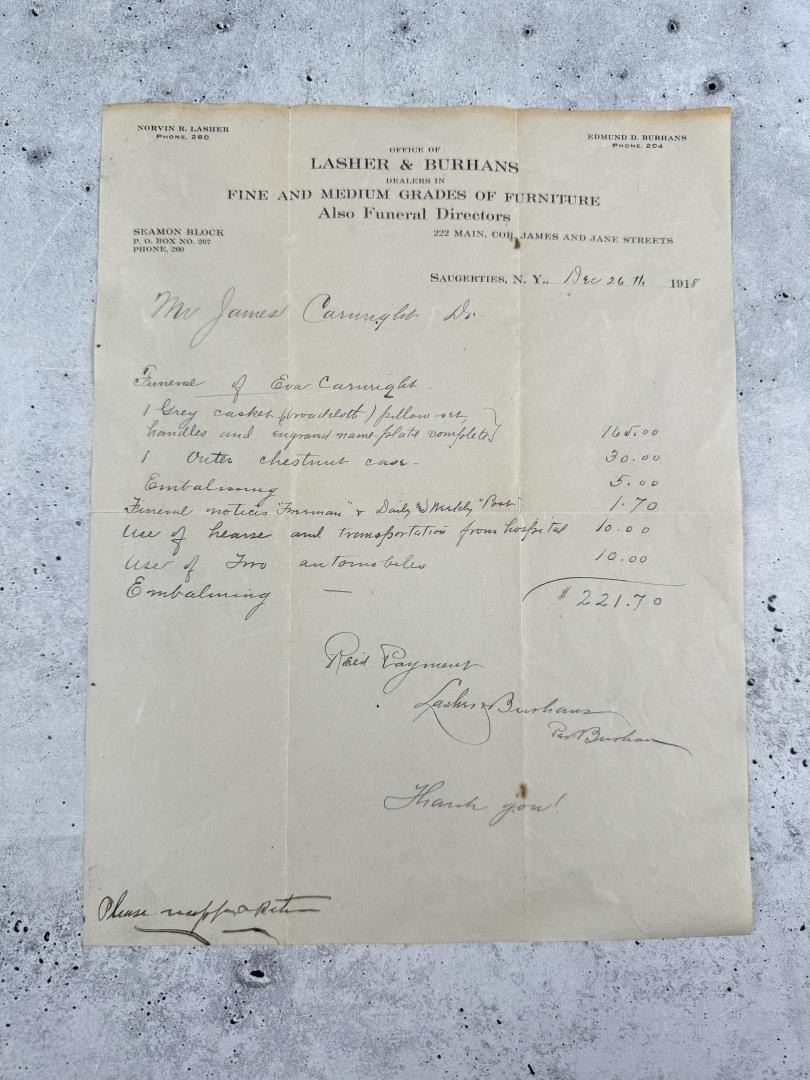 NORVIN R. LASHER
PHONE, 260
EDMUND D. BURHANS
PHONE, 204
OFFICE OF
LASHER & BURHANS
DEALERS IN
FINE AND MEDIUM GRADES OF FURNITURE
Also Funeral Directors
SEAMON BLOCK
P. O. BOX NO. 267
PHONE, 260
222 MAIN, COR. JAMES AND JANE STREETS
SAUGERTIES, N. Y., Dec 26 th 1918
Mr James Carnright Dr.
Funeral of Eva Carnright
1 Grey casket (broadcloth) pillow set
handles and engraved name plate complete} 165.00
1 Outer chestnut case - 30.00
Embalming 5.00
Funeral notices "Freeman" & Daily & Weekly "Post" 1.70
Use of hearse and transportation from hospital 10.00
Use of Two automobiles 10.00
Embalming — $221.70
Rec'd Payment
Lasher & Burhans
Per Burhans
Thank you!
Please